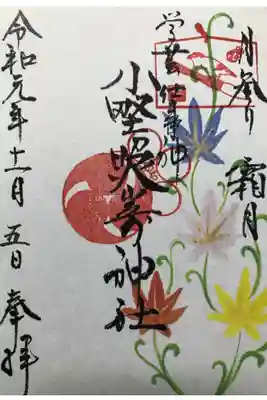 月参り 霜月
学芸仕事神
小野照崎神社
令和元年十一月五日 奉拝